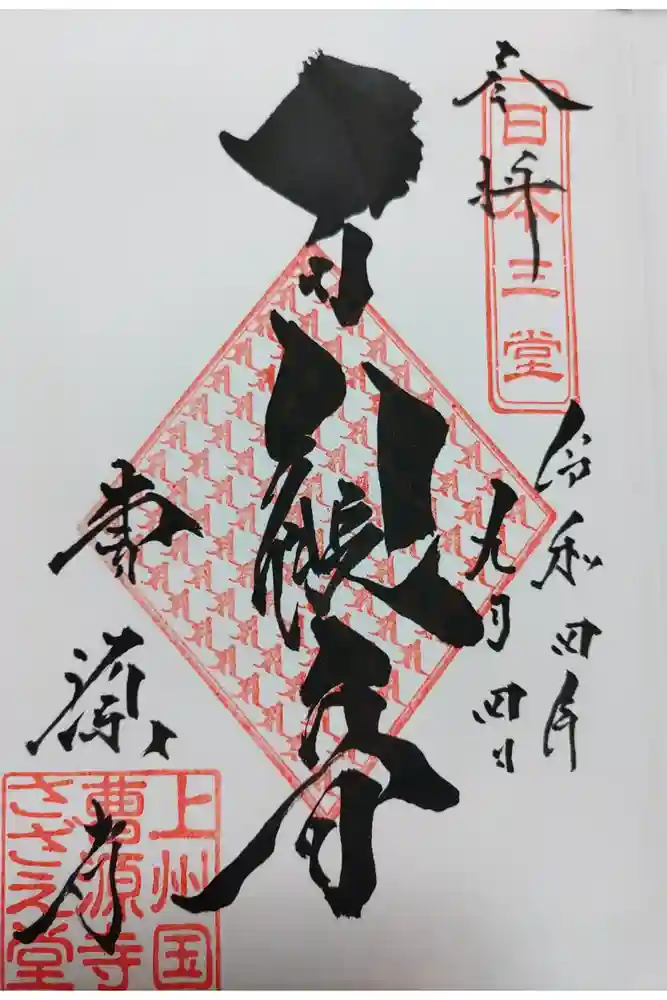 奉拝
日本三堂
令和四年
九月四日
曹源寺
上州国
曹源寺
さざえ堂